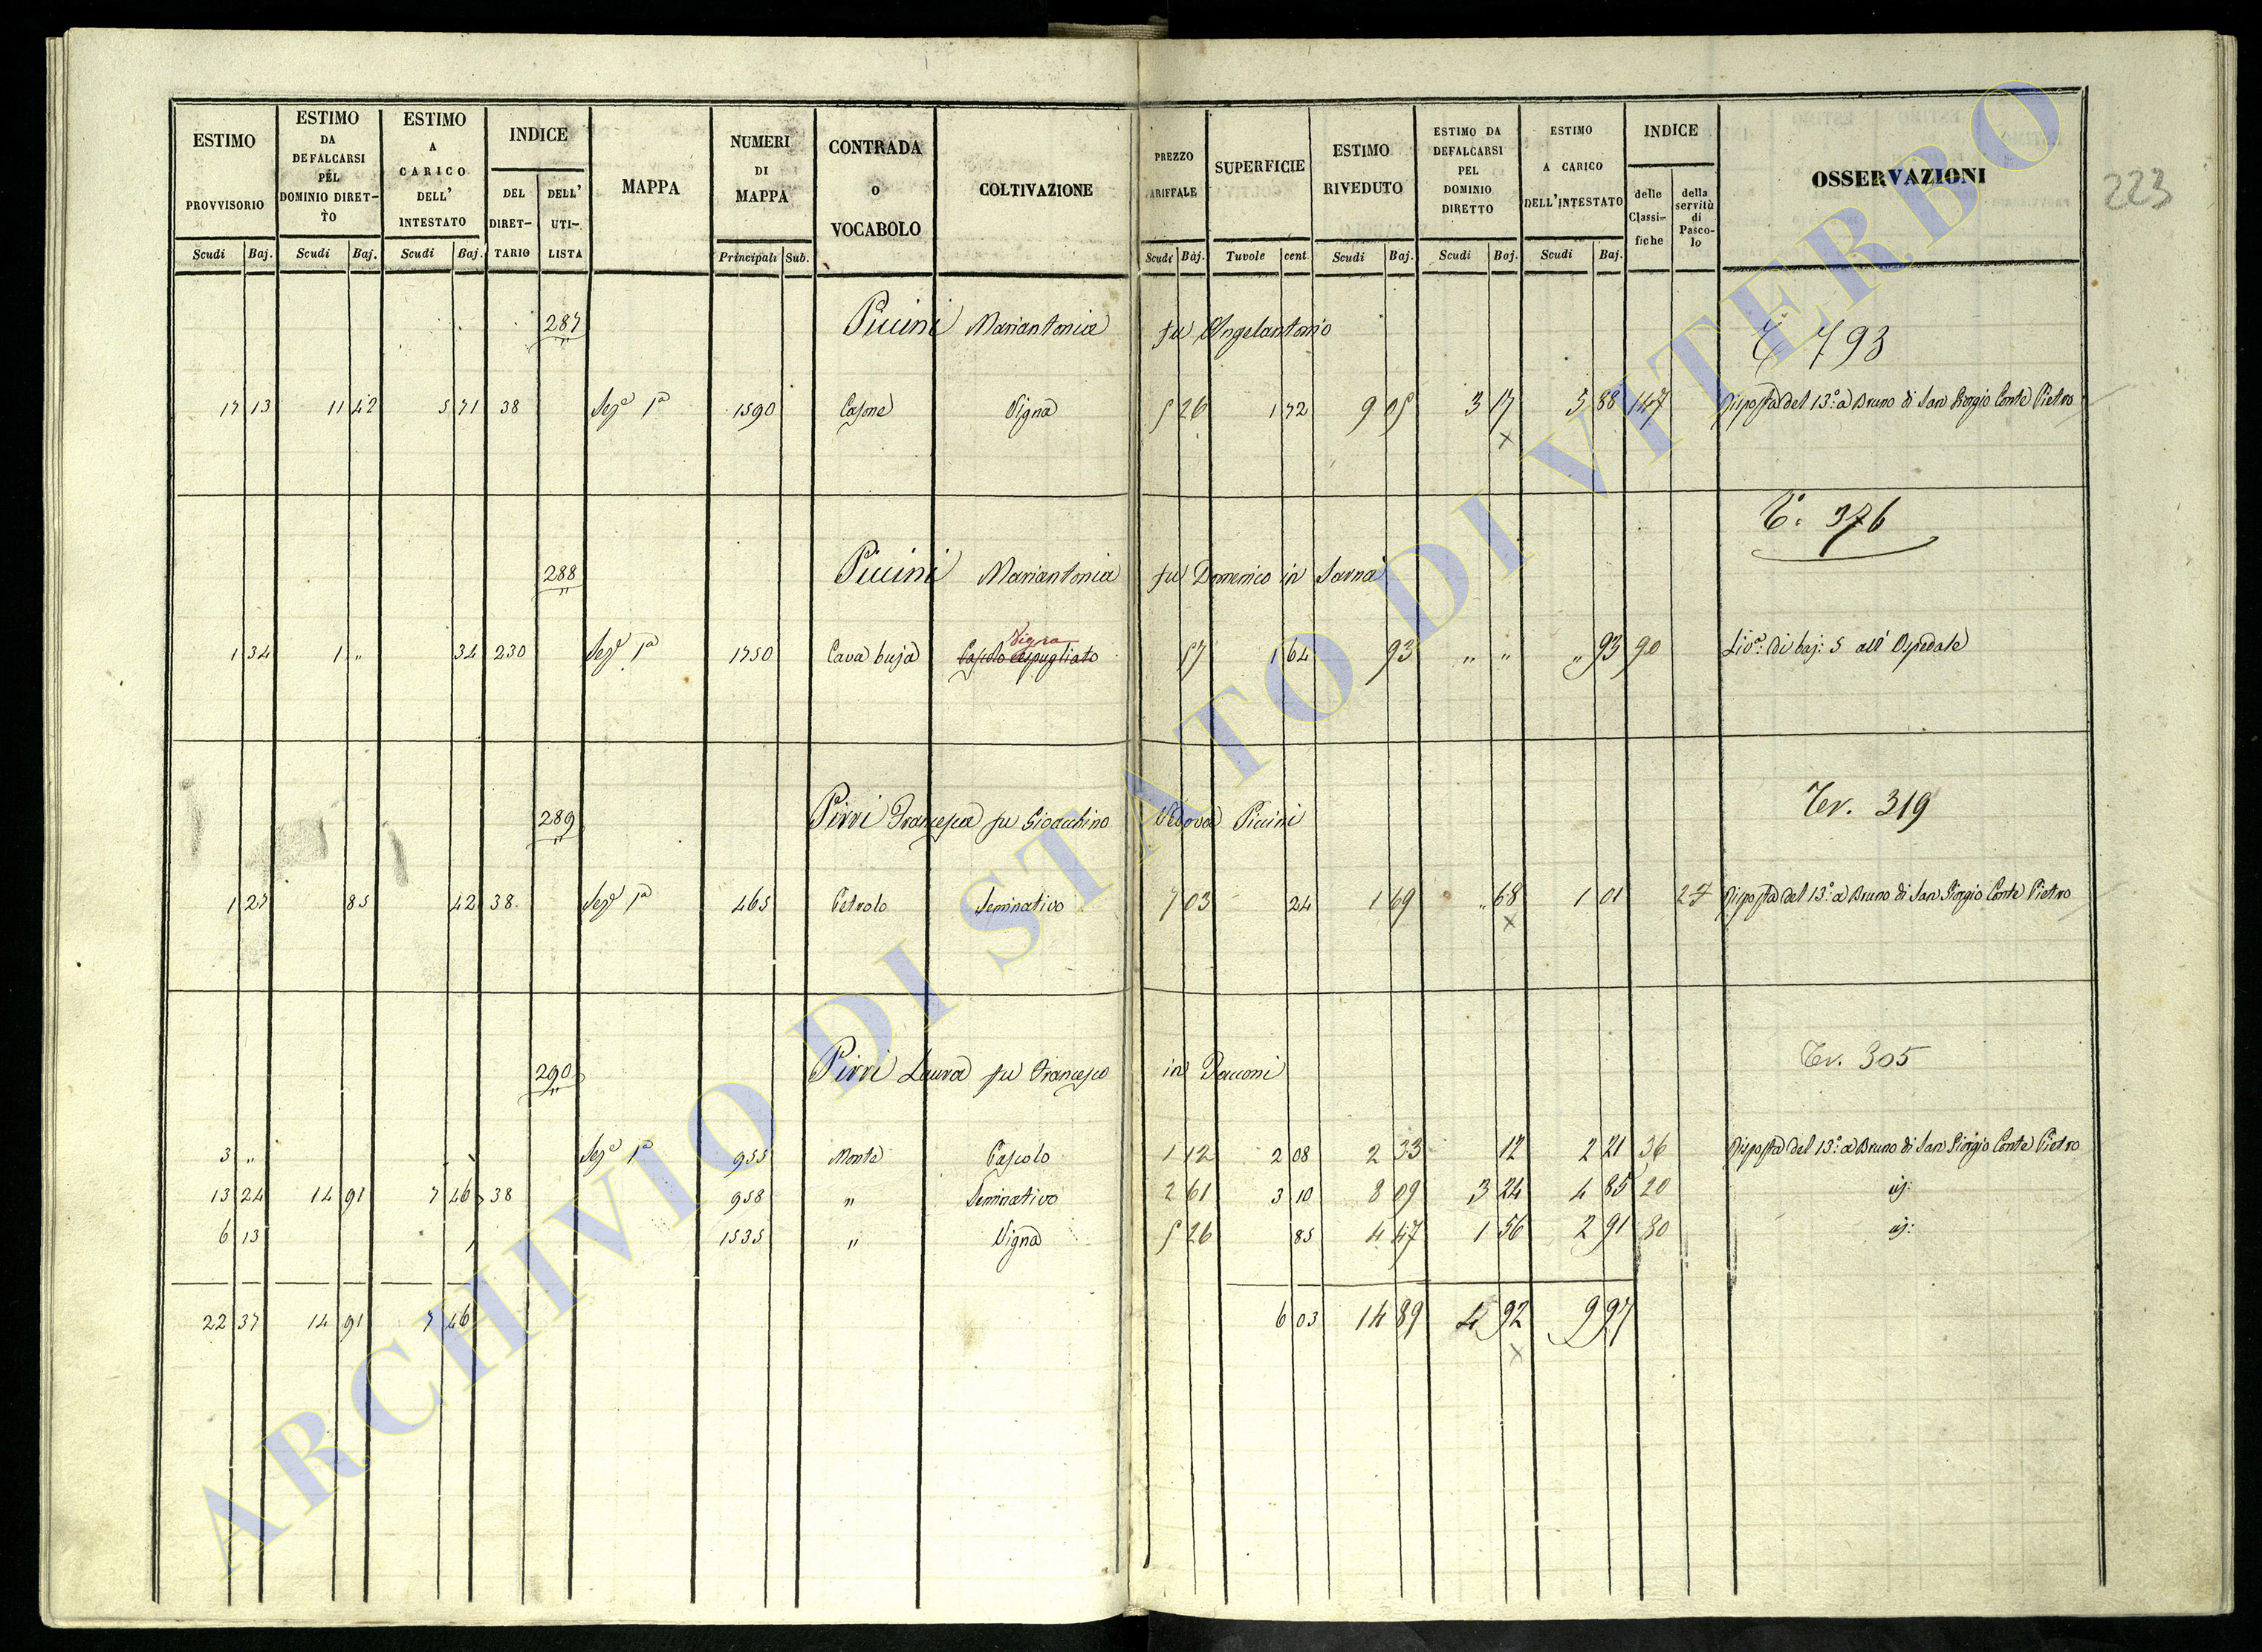 ESTIMO PROVVISORIO Scudi Baj.
ESTIMO DA DEFALCARSI PEL DOMINIO DIRETTO Scudi Baj.
ESTIMO A CARICO DELL' INTESTATO Scudi Baj.
INDICE DEL DIRETTARIO DELL' UTILISTA
MAPPA
NUMERI DI MAPPA Principali Sub.
CONTRADA o VOCABOLO
COLTIVAZIONE
PREZZO TARIFFALE Scudi Baj.
SUPERFICIE Tavole cent.
ESTIMO RIVEDUTO Scudi Baj.
ESTIMO DA DEFALCARSI PEL DOMINIO DIRETTO Scudi Baj.
ESTIMO A CARICO DELL'INTESTATO Scudi Baj.
INDICE delle Classifiche della servitù di Pascolo
OSSERVAZIONI
223
287 Piccini Mariantonia fu Angelantonio 793
17 13 11 42 5 71 38 Sez.e 1a 1590 Casone Vigna 5 26 1 72 9 05 3 17 5 88 147 Risposta del 13.o a Bruno di San Giorgio Conte Pietro
T.o 376
288 Piccini Mariantonia fu Domenico in Sarna
1 34 1 " 34 230 Sez.e 1a 1750 Cava buja Pascolo cespugliato Vigna 57 1 64 93 " " " 93 90 Liv.o: di baj: 5 all' Ospedale
289 Pirri Francesca fu Gioacchino Vedova Piccini Ter. 319
1 27 85 42 38 Sez.e 1a 465 Petrolo Seminativo 7 03 24 1 69 " 68 1 01 27 Risposta del 13.o a Bruno di San Giorgio Conte Pietro
290 Pirri Laura fu Francesco in Ter. 305
3 " Sez.e 1a 955 Monte Pascolo 1 12 2 08 2 33 12 2 21 36 Risposta del 13.o a Bruno di San Giorgio Conte Pietro
13 24 14 91 7 46 38 958 " Seminativo 2 61 3 10 8 09 3 24 4 85 20 id:
6 13 1535 " Vigna 5 26 85 4 47 1 56 2 91 80 id:
22 37 14 91 7 46 6 03 14 89 4 92 9 97
ARCHIVIO DI STATO DI VITERBO